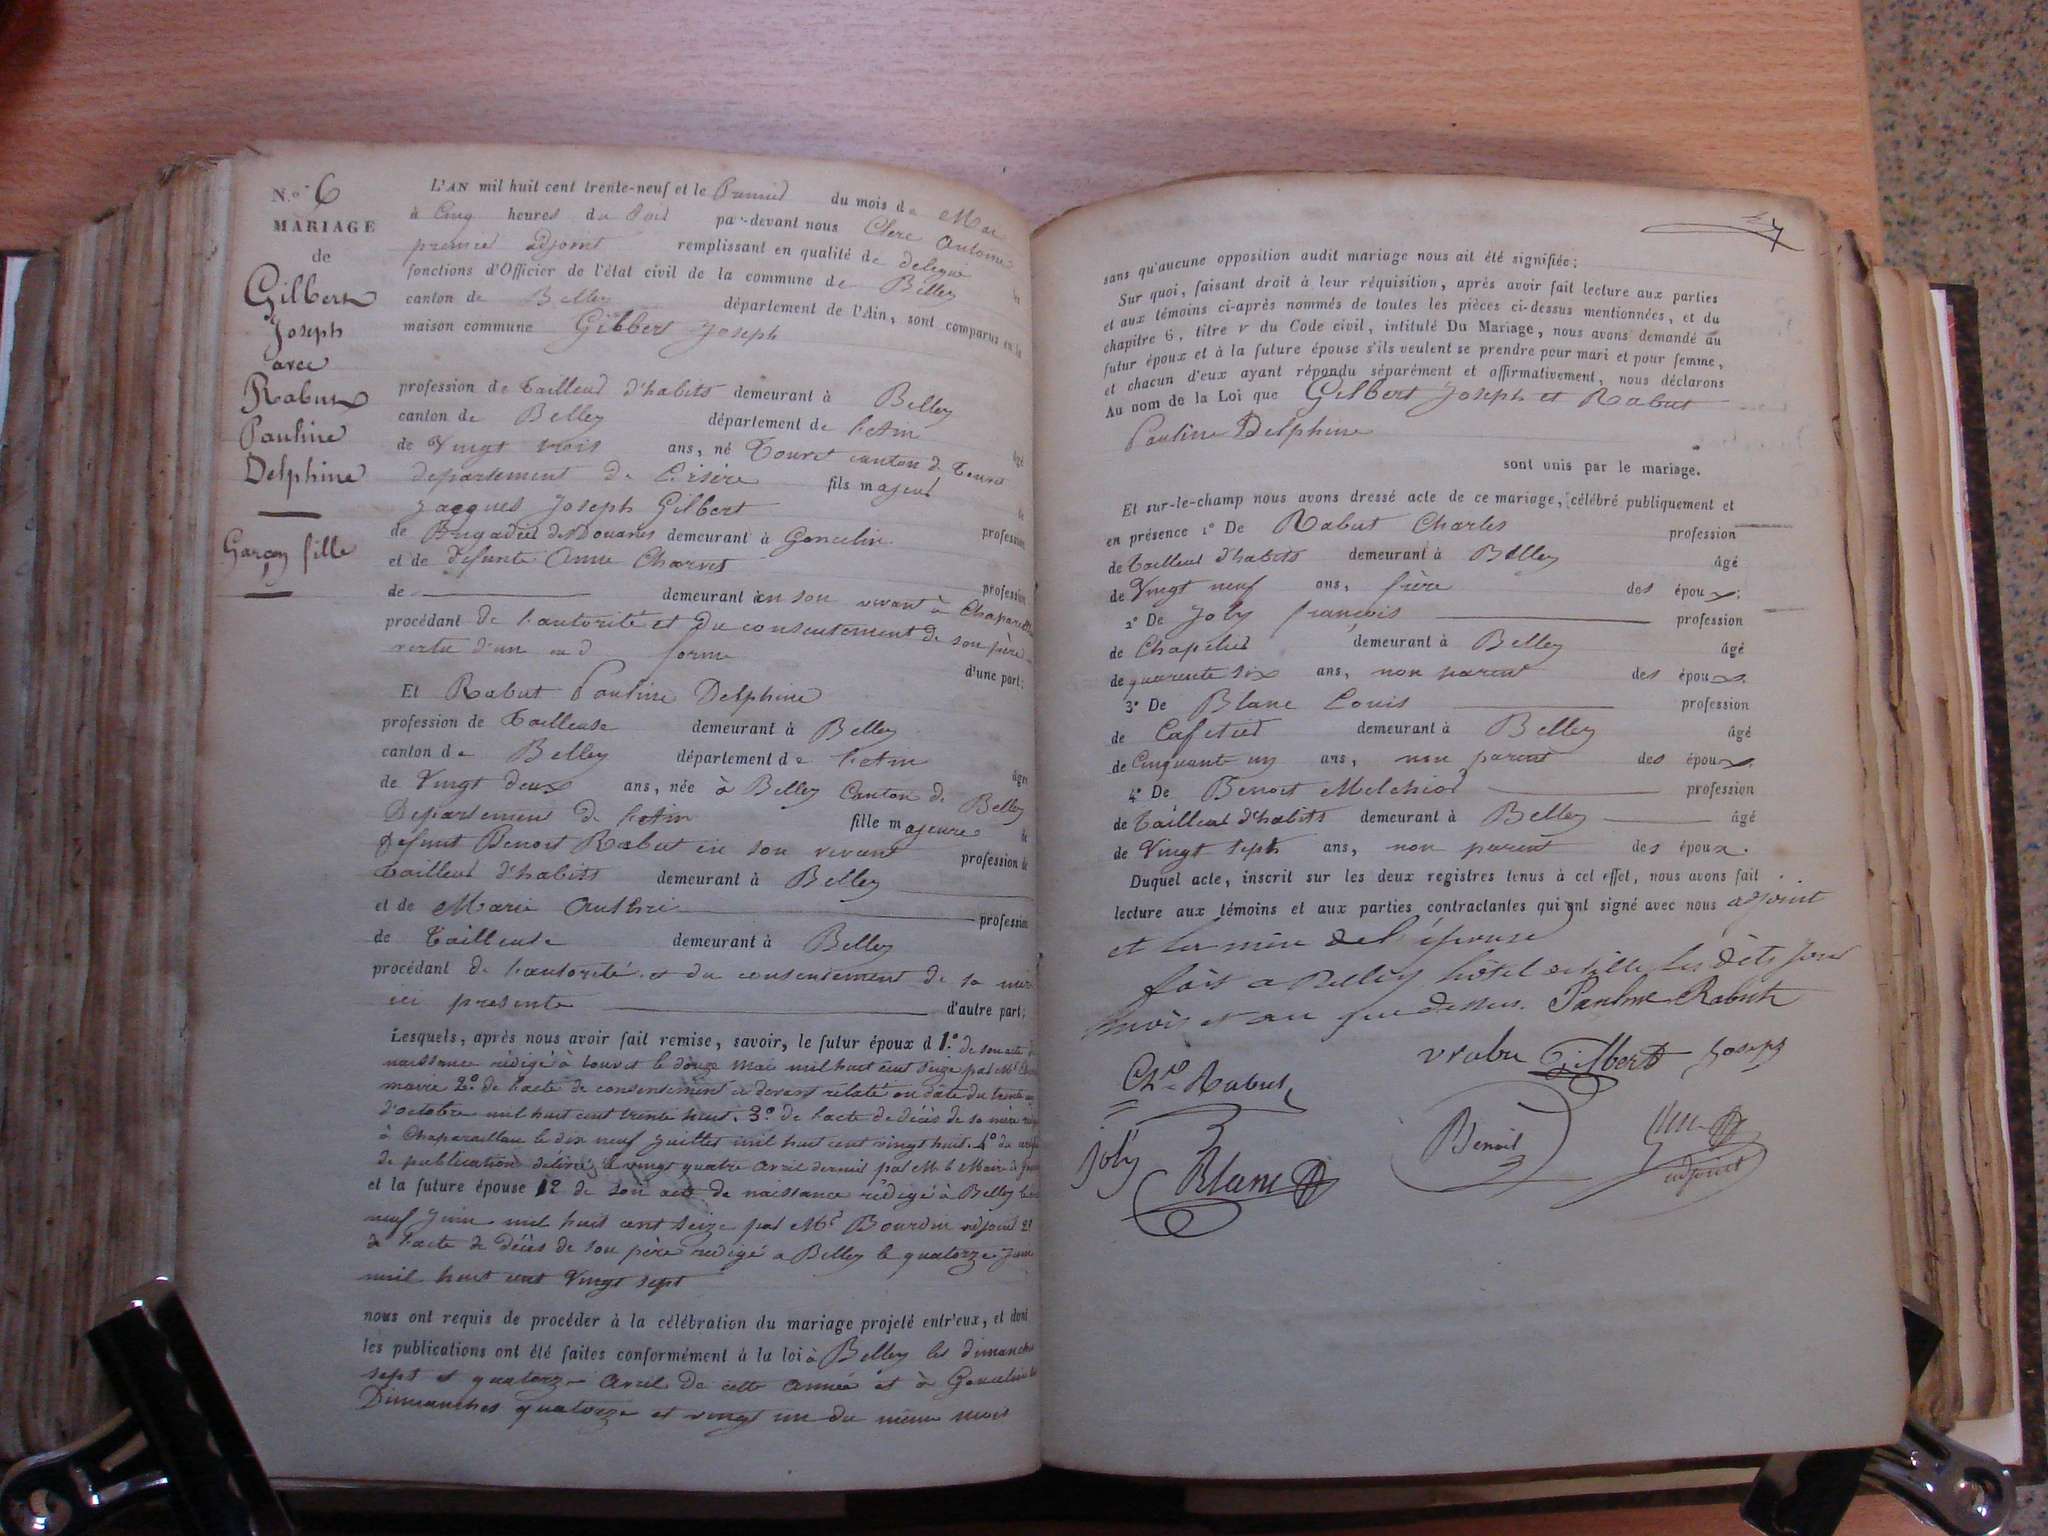 N.° 6
MARIAGE
de
Gilbert
Joseph
avec
Rabut
Pauline
Delphine
Garçon fille
L'AN mil huit cent trente-neuf et le Premier du mois de Mai
à Cinq heures du Soir par-devant nous Clerc Antoine
premier adjoint remplissant en qualité de delegué les
fonctions d'Officier de l'état civil de la commune de Belley
canton de Belley département de l'Ain, sont comparus en la
maison commune Gilbert Joseph
profession de Tailleur d'habits demeurant à Belley
canton de Belley département de l'Ain âgé
de Vingt trois ans, né Touvet canton du Touvet
departement de l'isère fils majeur de
Jacques Joseph Gilbert profession
de Brigadier des Douanes demeurant à Goncelin
et de defunte Anne Charvet profession
de demeurant en son vivant à
procédant de l'autorité et du consentement de son père en
vertu d'un forme d'une part;
Et Rabut Pauline Delphine
profession de Tailleuse demeurant à Belley
canton de Belley département de l'Ain âgée
de Vingt deux ans, née à Belley Canton de Belley
Departement de l'Ain fille majeure de
defunt Benoit Rabut en son vivant profession de
Tailleur d'habits demeurant à Belley
et de Marie profession
de Tailleuse demeurant à Belley
procédant de l'autorité et du consentement de sa mère
ici presente d'autre part;
Lesquels, après nous avoir fait remise, savoir, le futur époux d 1.° de son acte de
naissance rédigé à touvet le douze mai mil huit cent seize par Mr
maire 2.° de l'acte de consentement ci devant relaté en date du trente un
d'octobre mil huit cent trente huit. 3.° de l'acte de décès de sa mère
à Chapareillan le dix neuf Juillet mil huit cent vingt huit. 4.° du
de publication délivré le vingt quatre avril dernier par Mr le Maire de
et la future épouse 1.° de son acte de naissance rédigé à Belley le
neuf Juin mil huit cent seize par Mr Bourdin adjoint 2.°
de l'acte de décès de son père redigé a Belley le quatorze
mil huit cent Vingt sept
nous ont requis de procéder à la célébration du mariage projeté entr'eux, et dont
les publications ont été faites conformément à la loi à Belley les dimanches
sept et quatorze avril de cette année et à Goncelin les
Dimanches quatorze et vingt un du même mois
47
sans qu'aucune opposition audit mariage nous ait été signifiée;
Sur quoi, faisant droit à leur réquisition, après avoir fait lecture aux parties
et aux témoins ci-après nommés de toutes les pièces ci-dessus mentionnées, et du
chapitre 6, titre v du Code civil, intitulé Du Mariage, nous avons demandé au
futur époux et à la future épouse s'ils veulent se prendre pour mari et pour femme,
et chacun d'eux ayant répondu séparément et affirmativement, nous déclarons
Au nom de la Loi que Gilbert Joseph et Rabut
Pauline Delphine
sont unis par le mariage.
Et sur-le-champ nous avons dressé acte de ce mariage, célébré publiquement et
en présence 1° De Rabut Charles profession
de Tailleur d'habits demeurant à Belley âgé
de Vingt neuf ans, frère des époux;
2° De Joly françois profession
de Chapelier demeurant à Belley âgé
de quarente six ans, non parent des époux.
3° De Blanc Louis profession
de Cafetier demeurant à Belley âgé
de Cinquante un ans, non parent des époux.
4° De Benoit Melchior profession
de Tailleur d'habits demeurant à Belley âgé
de Vingt sept ans, non parent des époux.
Duquel acte, inscrit sur les deux registres tenus à cet effet, nous avons fait
lecture aux témoins et aux parties contractantes qui ont signé avec nous adjoint
et la mère de l'épouse
fait a Belley hôtel de ville les dits jour
mois et an que dessus. Pauline Rabut
vrabu Gilbert Joseph
Ch.les Rabut
joly Blanc Benoit
adjoint